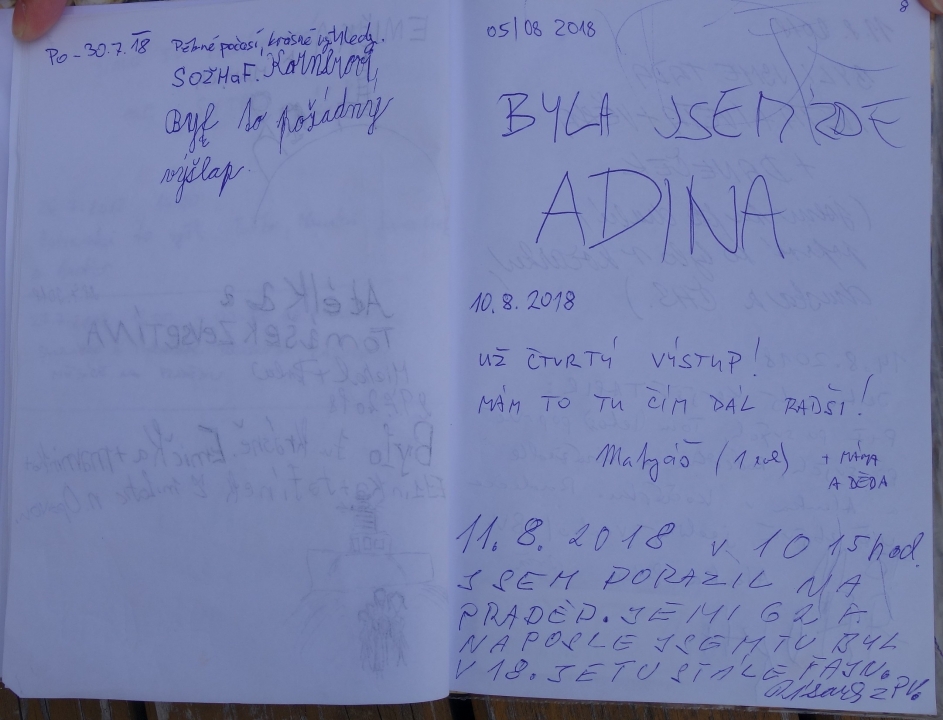 Po - 30.7.18 Pěkné počasí, krásné výhledy.
Byl to pořádný
výšlap.
8
05/08 2018
BYLA JSEM ZDE
ADINA
10.8.2018
UŽ ČTVRTÝ VÝSTUP!
MÁM TO TU ČÍM DÁL RADŠI!
Matyáš (1 rok) + MÁMA
A DĚDA
11.8.2018 v 10 15 hod.
JSEM DORAZIL NA
PRADĚD. JE MI 62 R.
NAPOSLE JSEM TU BYL
V 18. JE TU STÁLE FAJN.
z PV.